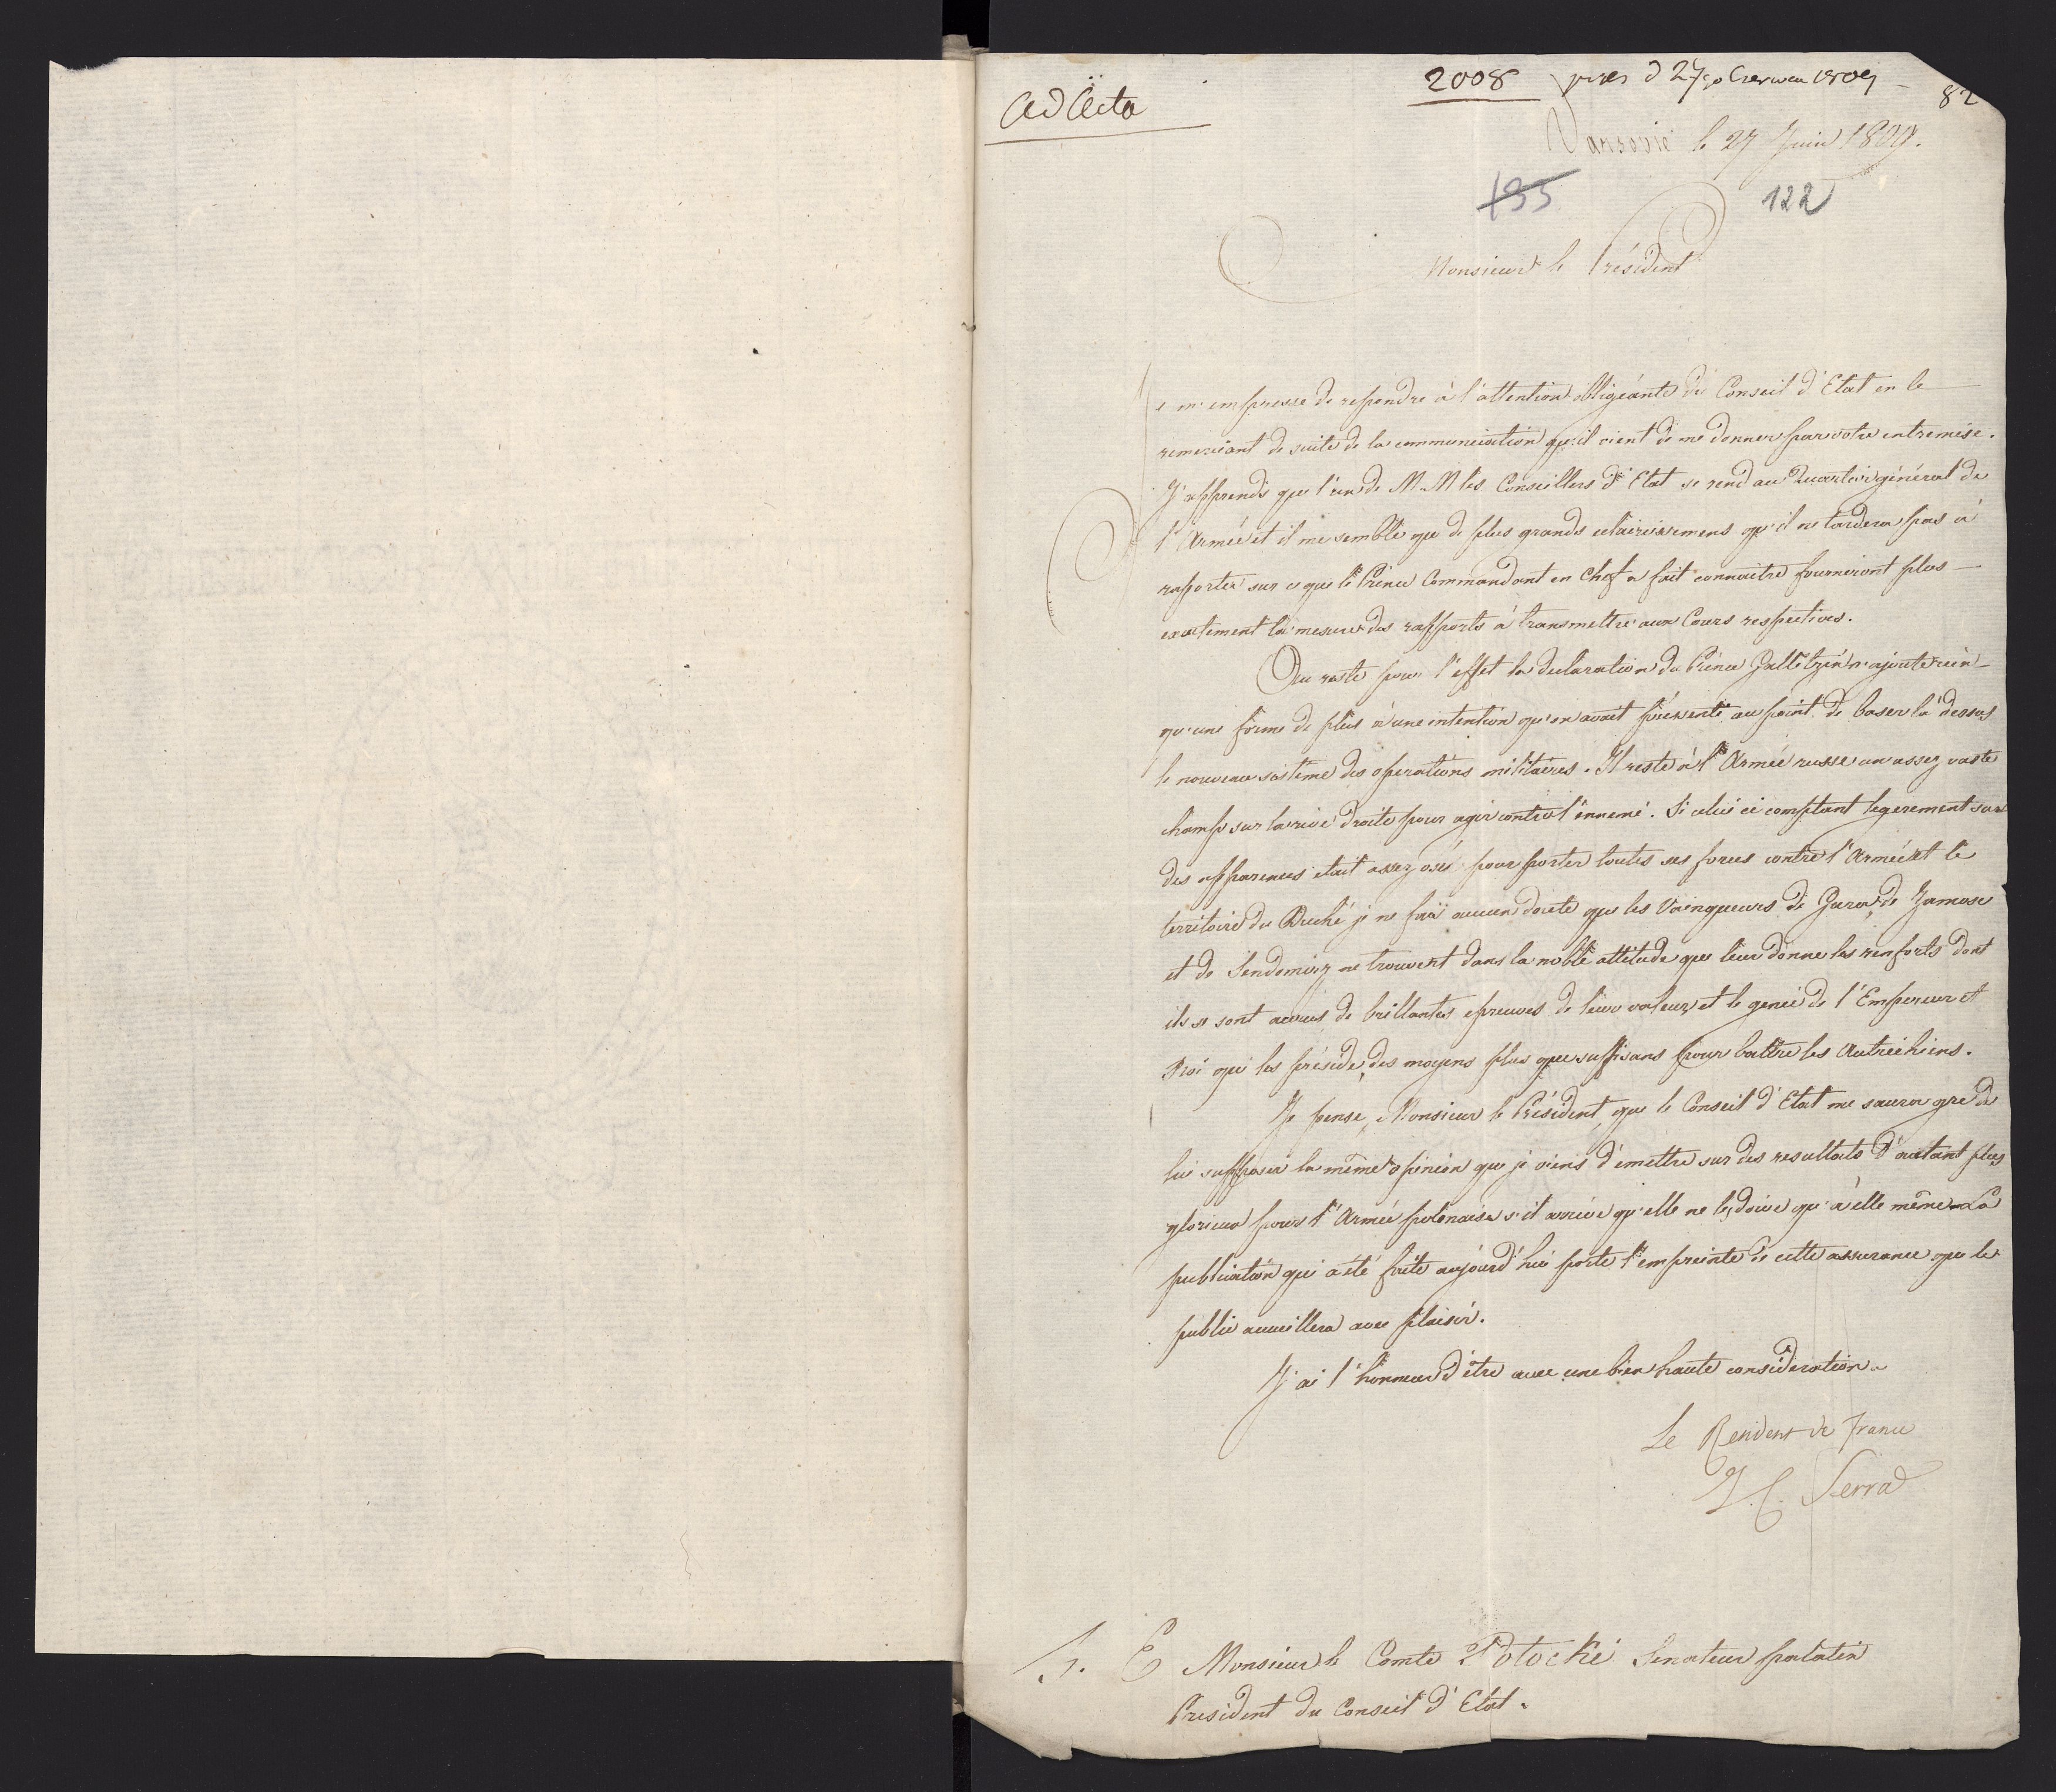 Ad Acta
2008 pres d 27go Czerwca 1809
82
Varsovie le 27 Juin 1809.
195
122
Monsieur le Président
Je m'empresse de repondre à l'attention obligeante du Conseil d'Etat en le
remerciant de suite de la communication qu'il vient de me donner par votre entremise.
J'apprends que l'un de M M les Conseillers d'Etat se rend au Quartier général de
l'Armée et il me semble que de plus grands eclaircissemens qu'il ne tardera pas à
raporter sur ce que le Prince Commandant en Chef a fait connaitre fourniront plus
exactement la mesure des rapports à transmettre aux Cours respectives.
Au reste pour l'effet la declaration du Prince Gallitzin n'ajoute rien
qu'une forme de plus à une intention qu'on avait préssenti au point de baser là dessus
le nouveau sistême des operations militaires. Il reste à l'Armée russe un assez vaste
champ sur la rive droite pour agir contre l'ennemi. Si celui ci comptant legerement sur
des apparences etait assez osé pour porter toutes ses forces contre l'Armée et le
territoire du Duché je ne fais aucun doute que les Vainqueurs de Gura, de Zamosc
et de Sendomirz ne trouvent dans la noble attitude que leur donne les renforts dont
ils se sont accrus de brillantes epreuves de leur valeur, et le genie de l'Empereur et
Roi qui les préside, des moyens plus que suffisans pour battre les Autrichiens.
Je pense, Monsieur le Président, que le Conseil d'Etat me saura gre de
lui supposer la même opinion que je viens d'emettre sur des resultats d'autant plus
glorieux pour l'Armée polonaise s'il arrive qu'elle ne les doive qu'à elle même. La
publication qui a été faite aujourd'hui porte l'empreinte de cette assurance que le
public accueillera avec plaisir.
J'ai l'honneur d'être avec une bien haute consideration
Le Resident de France
J. C. Serra
S. E Monsieur le Comte Potocki Senateur palatin
President du Conseil d'Etat.